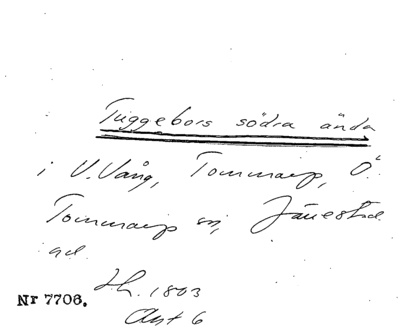 Tuggebors södra ända
i V. Vång, Tommarp, Ö.
Tommarp sn, Järrestad
hd.
Lh. 1803
Akt 6
Nr 7706.